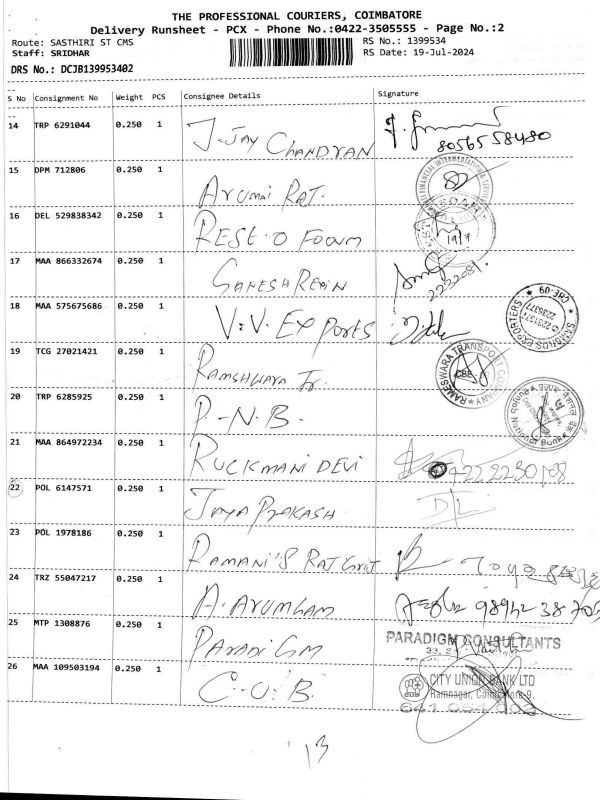 THE PROFESSIONAL COURIERS, COIMBATORE
Delivery Runsheet - PCX - Phone No.:0422-3505555 - Page No.:2
Route: SASTHIRI ST CMS RS No.: 1399534
Staff: SRIDHAR RS Date: 19-Jul-2024
DRS No.: DCJB139953402
S No Consignment No Weight PCS Consignee Details Signature
14 TRP 6291044 0.250 1 J.JAY CHANDRAN
8056558480
15 DPM 712806 0.250 1 ARUMAI RAJ.
16 DEL 529838342 0.250 1 REST O FOAM
19/7
17 MAA 866332674 0.250 1 GANESH
2232081.
18 MAA 575675686 0.250 1 V.V. EXPORTS
SAMBROS EXPORTERS CBE-09
2231371
2235377
19 TCG 27021421 0.250 1
RAMESWARA TRANSPORT COMPANY CBE
20 TRP 6285925 0.250 1 P-N.B.
Punjab National Bank
21 MAA 864972234 0.250 1 RUCKMANI DEVI
22 POL 6147571 0.250 1 JAYA PRAKASH D/L
23 POL 1978186 0.250 1 RAMANI'S
24 TRZ 55047217 0.250 1 A. ARUMGAM
25 MTP 1308876 0.250 1 PARADIGM
PARADIGM CONSULTANTS
26 MAA 109503194 0.250 1 C.U.B.
CITY UNION BANK LTD
Ramnagar, Coimbatore-9.
641 054 002
13